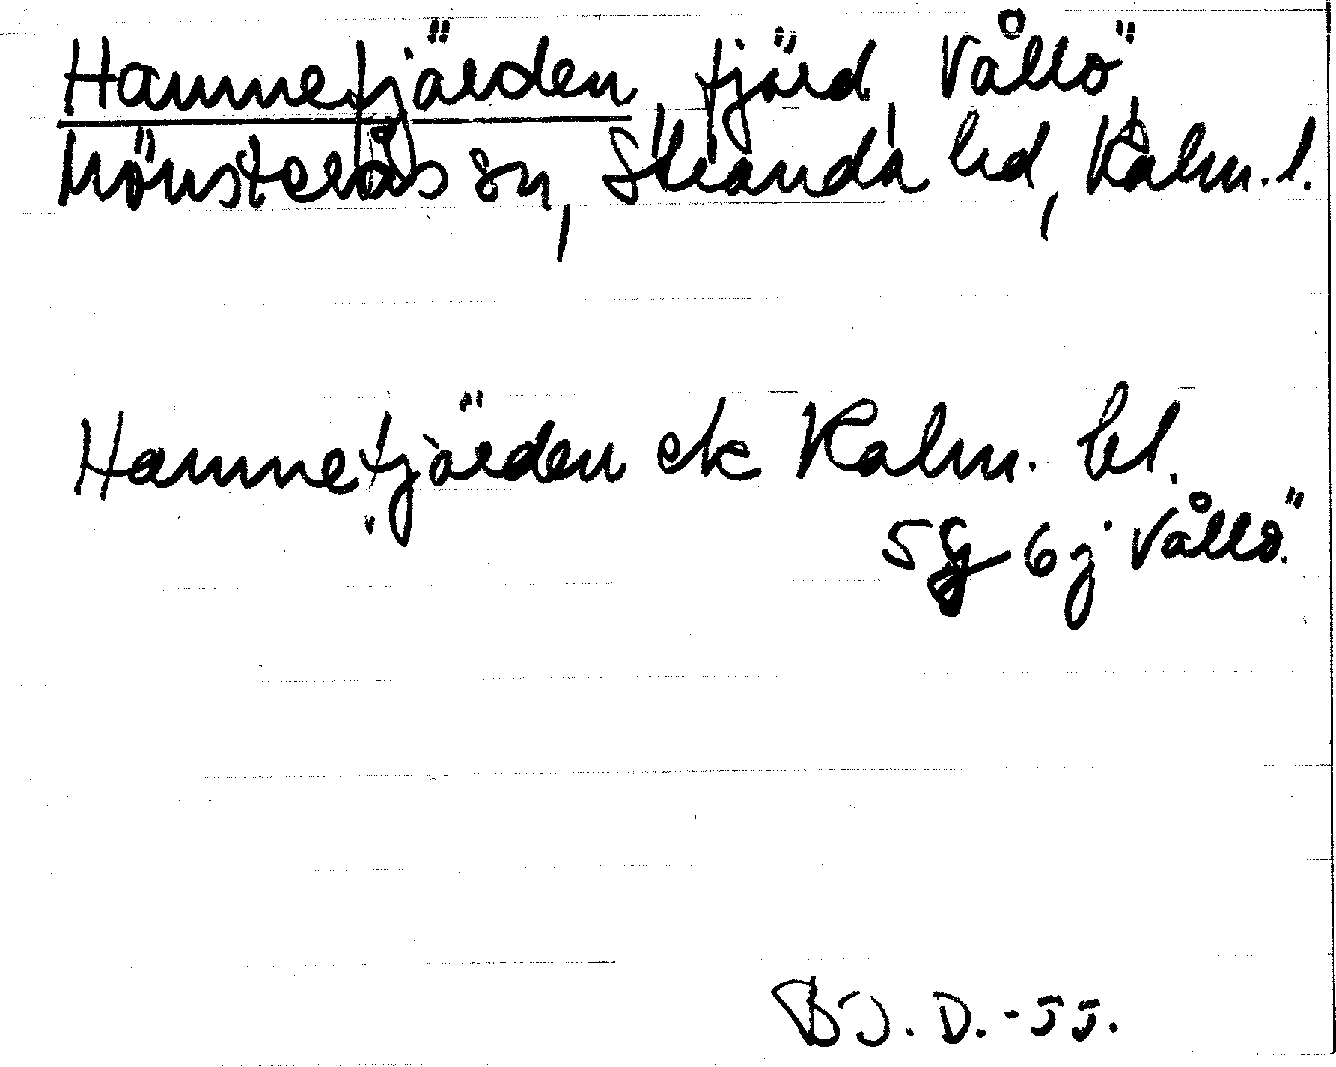 Hamnefjärden, fjärd, Vållö,
Mönsterås sn, Stranda hd, Kalm. l.
Hamnefjärden ek Kalm. bl.
5g 6j Vållö.
BJ. D. -55.